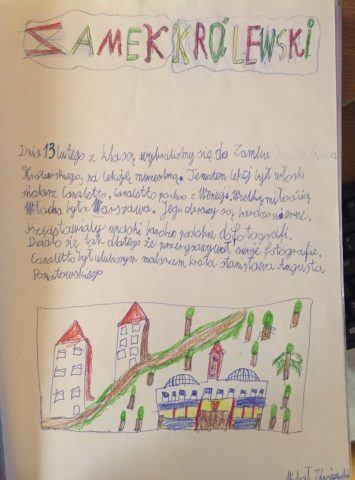 ZAMEK KRÓLEWSKI
Dnia 13 lutego z klasą wybraliśmy się do Zamku
Królewskiego, na lekcję muzealną. Tematem lekcji był włoski
malarz Canaletto. Canaletto pocho z Wenecji. Wielką miłością
Włocha była Warszawa. Jego obrazy są bardzo wierne.
Przedstawiały widoki bardzo podobne do fotografi.
Działo się tak dlatego że przerysowywał swoje fotografie.
Canaletto był ulubionym malarzem króla Stanisława Augusta
Poniatowskiego
Michał